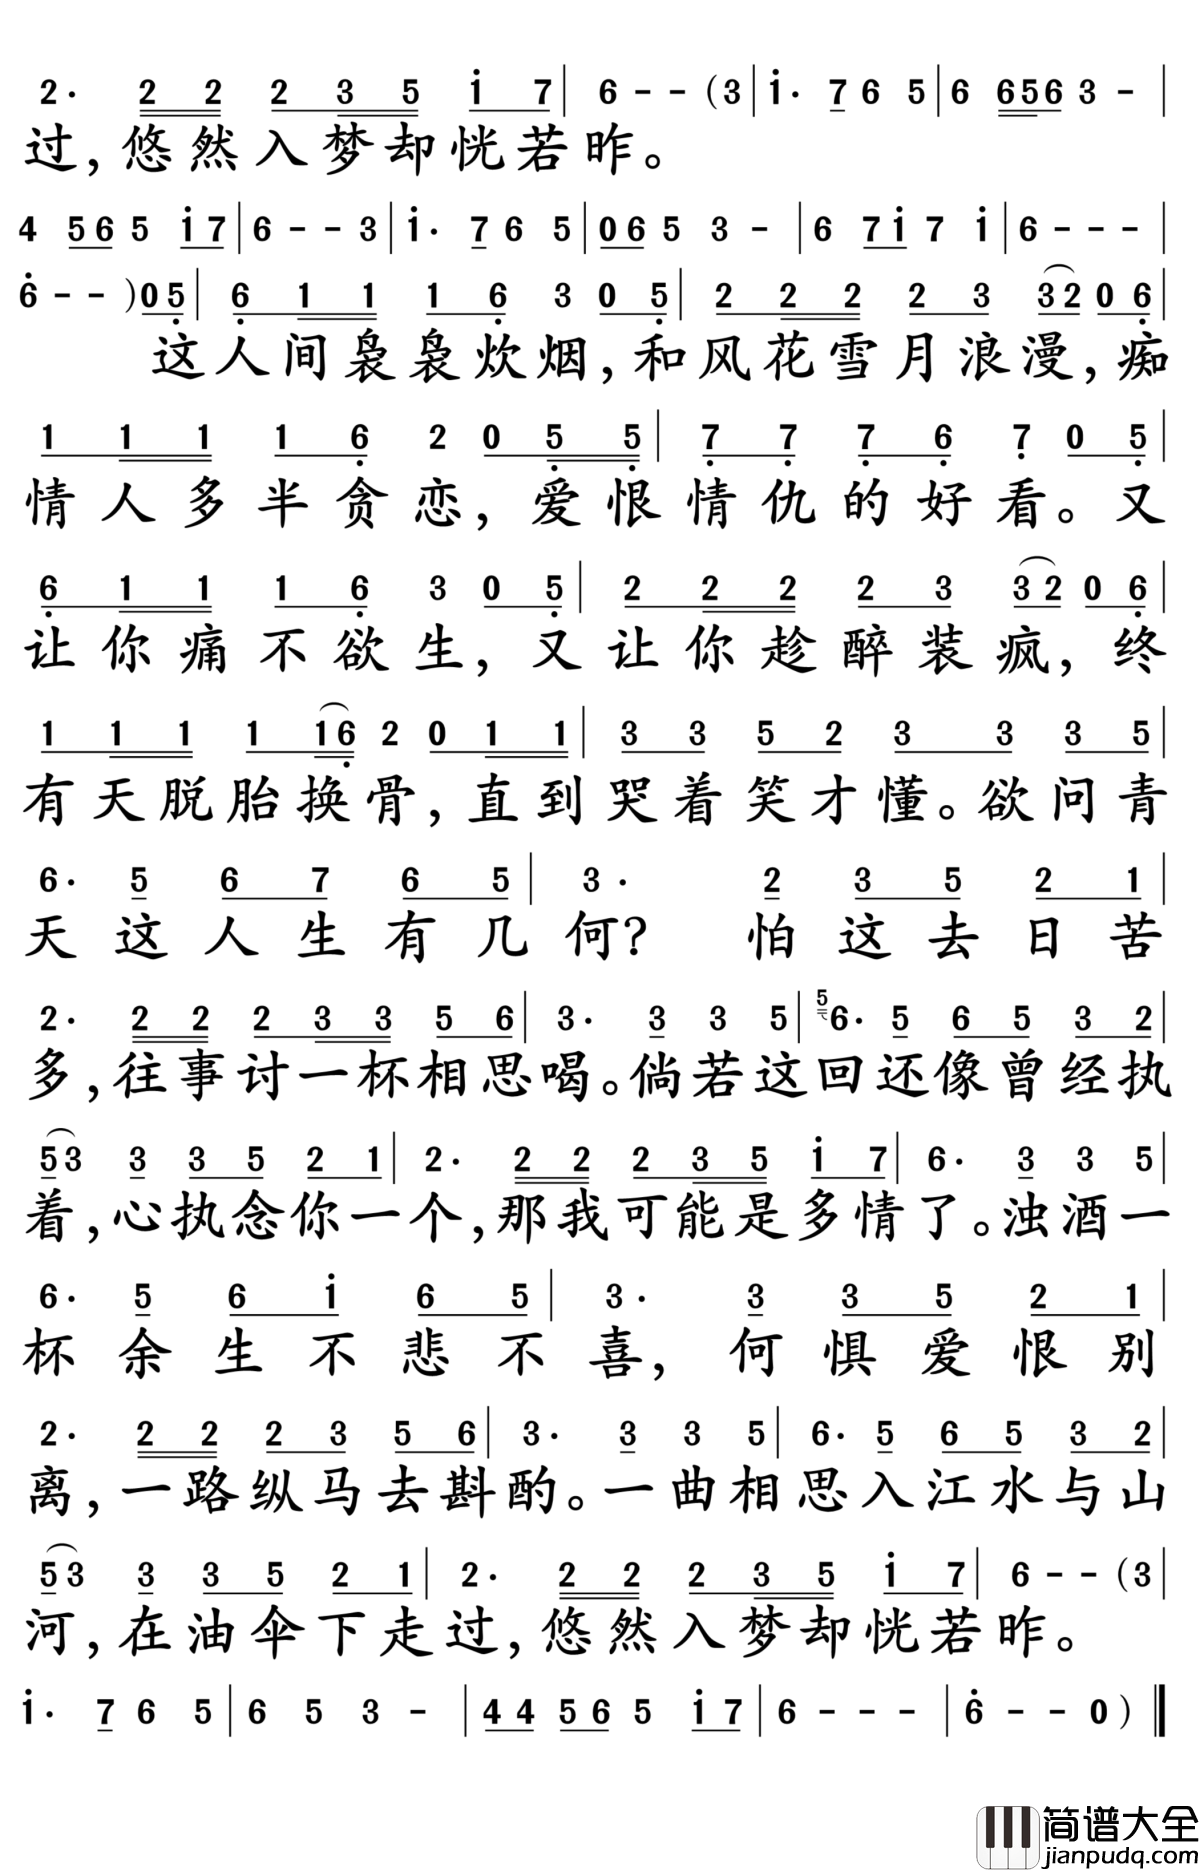 2· 2 2 2 3 5 i 7 | 6 - - (3 | i· 7 6 5 | 6 656 3 - |
过，悠然入梦却恍若昨。
4 56 5 i7 | 6 - - 3 | i· 7 6 5 | 06 5 3 - | 6 7i 7 i | 6 - - - |
6 - - ) 05 | 6 1 1 1 6 3 0 5 | 2 2 2 2 3 32 0 6 |
这人间袅袅炊烟，和风花雪月浪漫，痴
1 1 1 1 6 2 0 5 5 | 7 7 7 6 7 0 5 |
情人多半贪恋，爱恨情仇的好看。又
6 1 1 1 6 3 0 5 | 2 2 2 2 3 32 0 6 |
让你痛不欲生，又让你趁醉装疯，终
1 1 1 1 16 2 0 1 1 | 3 3 5 2 3 3 3 5 |
有天脱胎换骨，直到哭着笑才懂。欲问青
6· 5 6 7 6 5 | 3· 2 3 5 2 1 |
天这人生有几何？怕这去日苦
2· 2 2 2 3 3 5 6 | 3· 3 3 5 | 5 6· 5 6 5 3 2 |
多，往事讨一杯相思喝。倘若这回还像曾经执
53 3 3 5 2 1 | 2· 2 2 2 3 5 i 7 | 6· 3 3 5 |
着，心执念你一个，那我可能是多情了。浊酒一
6· 5 6 i 6 5 | 3· 3 3 5 2 1 |
杯余生不悲不喜，何惧爱恨别
2· 2 2 2 3 5 6 | 3· 3 3 5 | 6· 5 6 5 3 2 |
离，一路纵马去斟酌。一曲相思入江水与山
53 3 3 5 2 1 | 2· 2 2 2 3 5 i 7 | 6 - - (3 |
河，在油伞下走过，悠然入梦却恍若昨。
i· 7 6 5 | 6 5 3 - | 44 56 5 i7 | 6 - - - | 6 - - 0 ) ‖
简谱大全
jianpudq.com